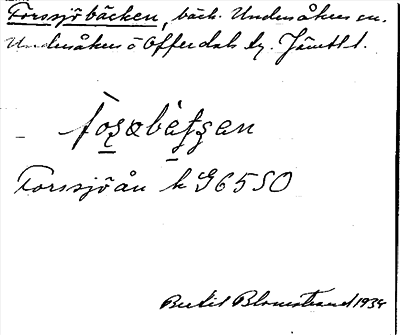 Forssjöbäcken, bäck. Undersåkers sn.
Undersåkers o Offerdals tg. Jämtl l.
Forssjöån k G65SO
Bertil Blomstrand 1934